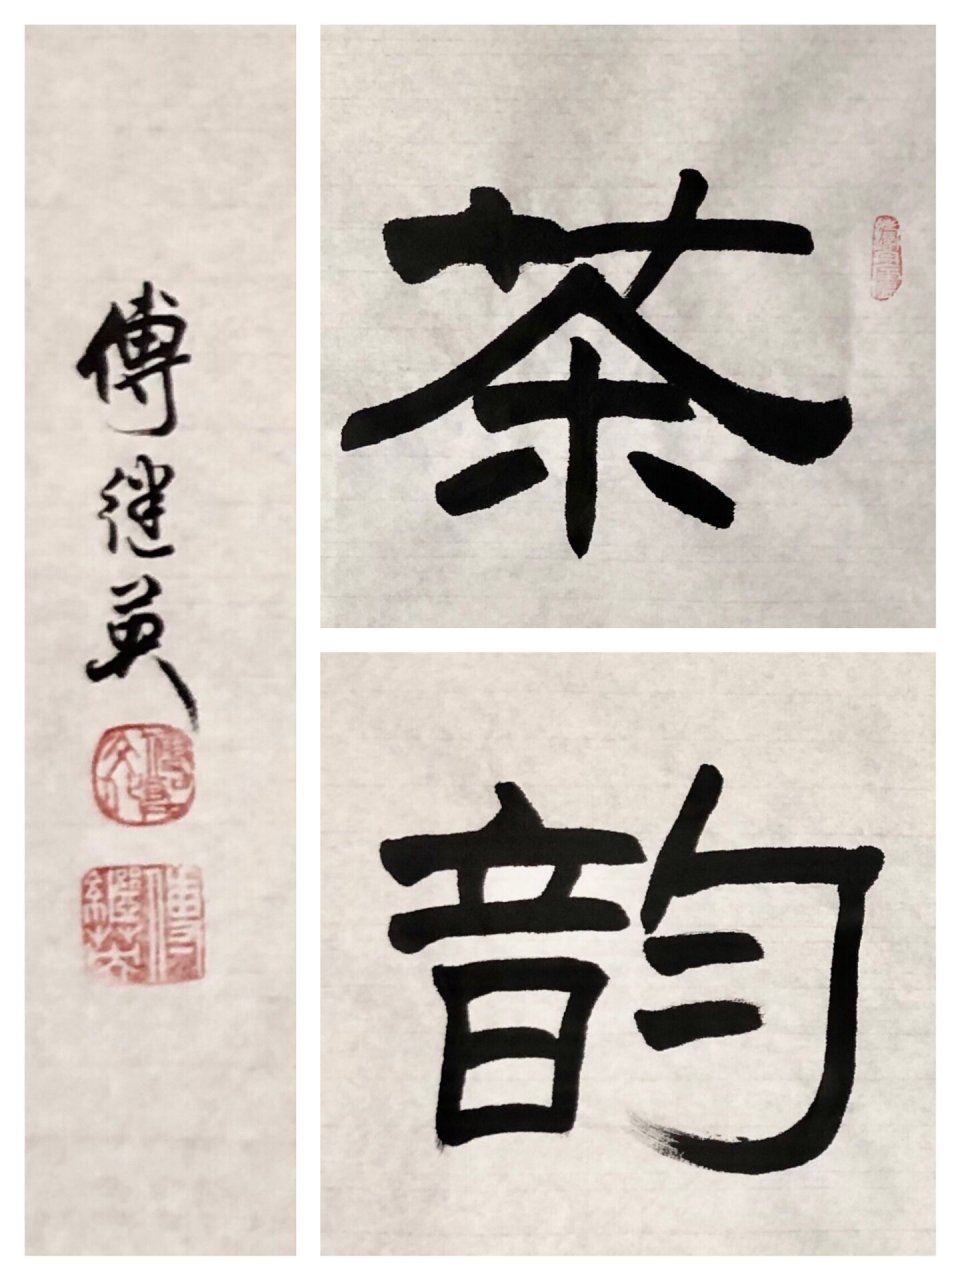 茶
韵
傅继英
傅继英